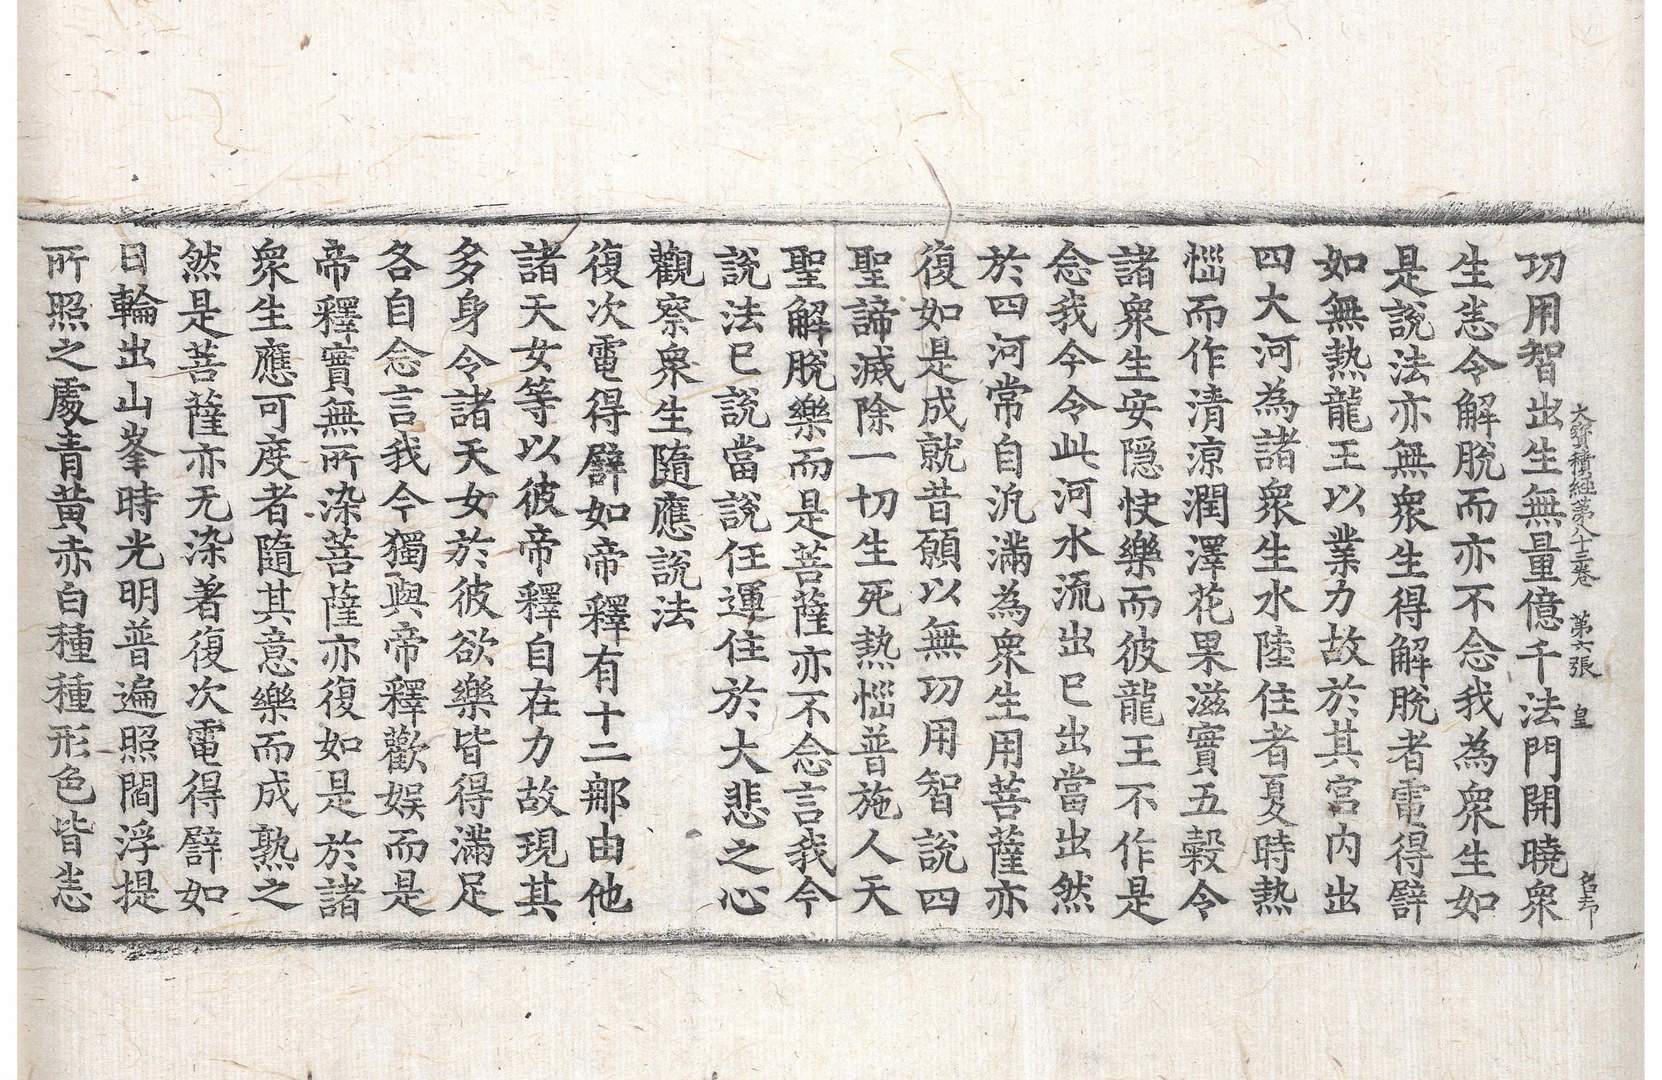 大寳積經第八十三卷　第六張　皇
功用智出生無量億千法門開曉衆
生恙令解脫而亦不念我為衆生如
是說法亦無衆生得解脫者電得譬
如無熱龍王以業力故於其宮内出
四大河為諸衆生水陸住者夏時熱
惱而作清涼潤澤花果滋實五穀令
諸衆生安隱快樂而彼龍王不作是
念我今令此河水流出已出當出然
於四河常自汎滿為衆生用菩薩亦
復如是成就昔願以無功用智說四
聖諦滅除一切生死熱惱普施人天
聖解脫樂而是菩薩亦不念言我今
說法已說當說任運住於大悲之心
觀察衆生隨應說法
復次電得譬如帝釋有十二那由他
諸天女等以彼帝釋自在力故現其
多身令諸天女於彼欲樂皆得滿足
各自念言我今獨與帝釋歡娛而是
帝釋實無所染菩薩亦復如是於諸
衆生應可度者隨其意樂而成熟之
然是菩薩亦无染著復次電得譬如
日輪出山峯時光明普遍照閻浮提
所照之處青黄赤白種種形色皆恙